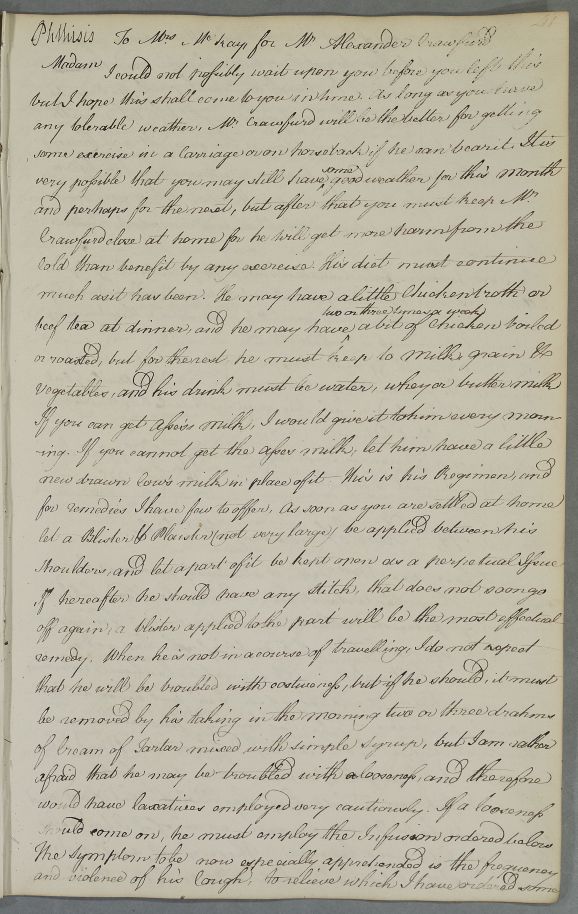 Phthisis To Mrs. McKay for Mr. Alexander Crawfurd
Madam I could not possibly wait upon you before you left this
but I hope this shall come to you in time. As long as you have
any tolerable weather, Mr. Crawfurd will be the better for getting
some exercise in a Carriage or on horseback if he can bear it. It is
very possible that you may still have some good weather for this month
and perhaps for the next, but after that you must keep Mr.
Crawfurd close at home for he will get more harm from the
Cold than benefit by any exercise. His diet must continue
much as it has been. He may have a little Chicken broth or
beef tea at dinner, and he may two or three times a week have a bit of Chicken boiled
or roasted, but for the rest he must keep to milk, grain &
vegetables, and his drink must be water, whey or butter milk
If you can get Asses milk, I would give it to him every morn-
ing. If you cannot get the asses milk, let him have a little
new drawn Cow's milk in place of it. This is his Regimen, and
for remedies I have few to offer. As soon as you are settled at home
let a Blister Plaister (not very large) be applied between his
Shoulders, and let a part of it be kept open as a perpetual Issue
If hereafter he should have any Stitch, that does not soon go
off again, a blister applied to the part will be the most effectual
remedy. When he is not in a course of travelling, I do not expect
that he will be troubled with costiveness, but if he should, it must
be removed by his taking in the morning two or three drahms
of Cream of Tartar mixed with simple Syrup, but I am rather
afraid that he may be troubled with a looseness, and therefore
would have laxatives employed very cautiously. If a looseness
should come on, he must employ the Infusion ordered below
The Symptom to be now especially apprehended is the frequency
and violence of his Cough, to relieve which I have ordered some